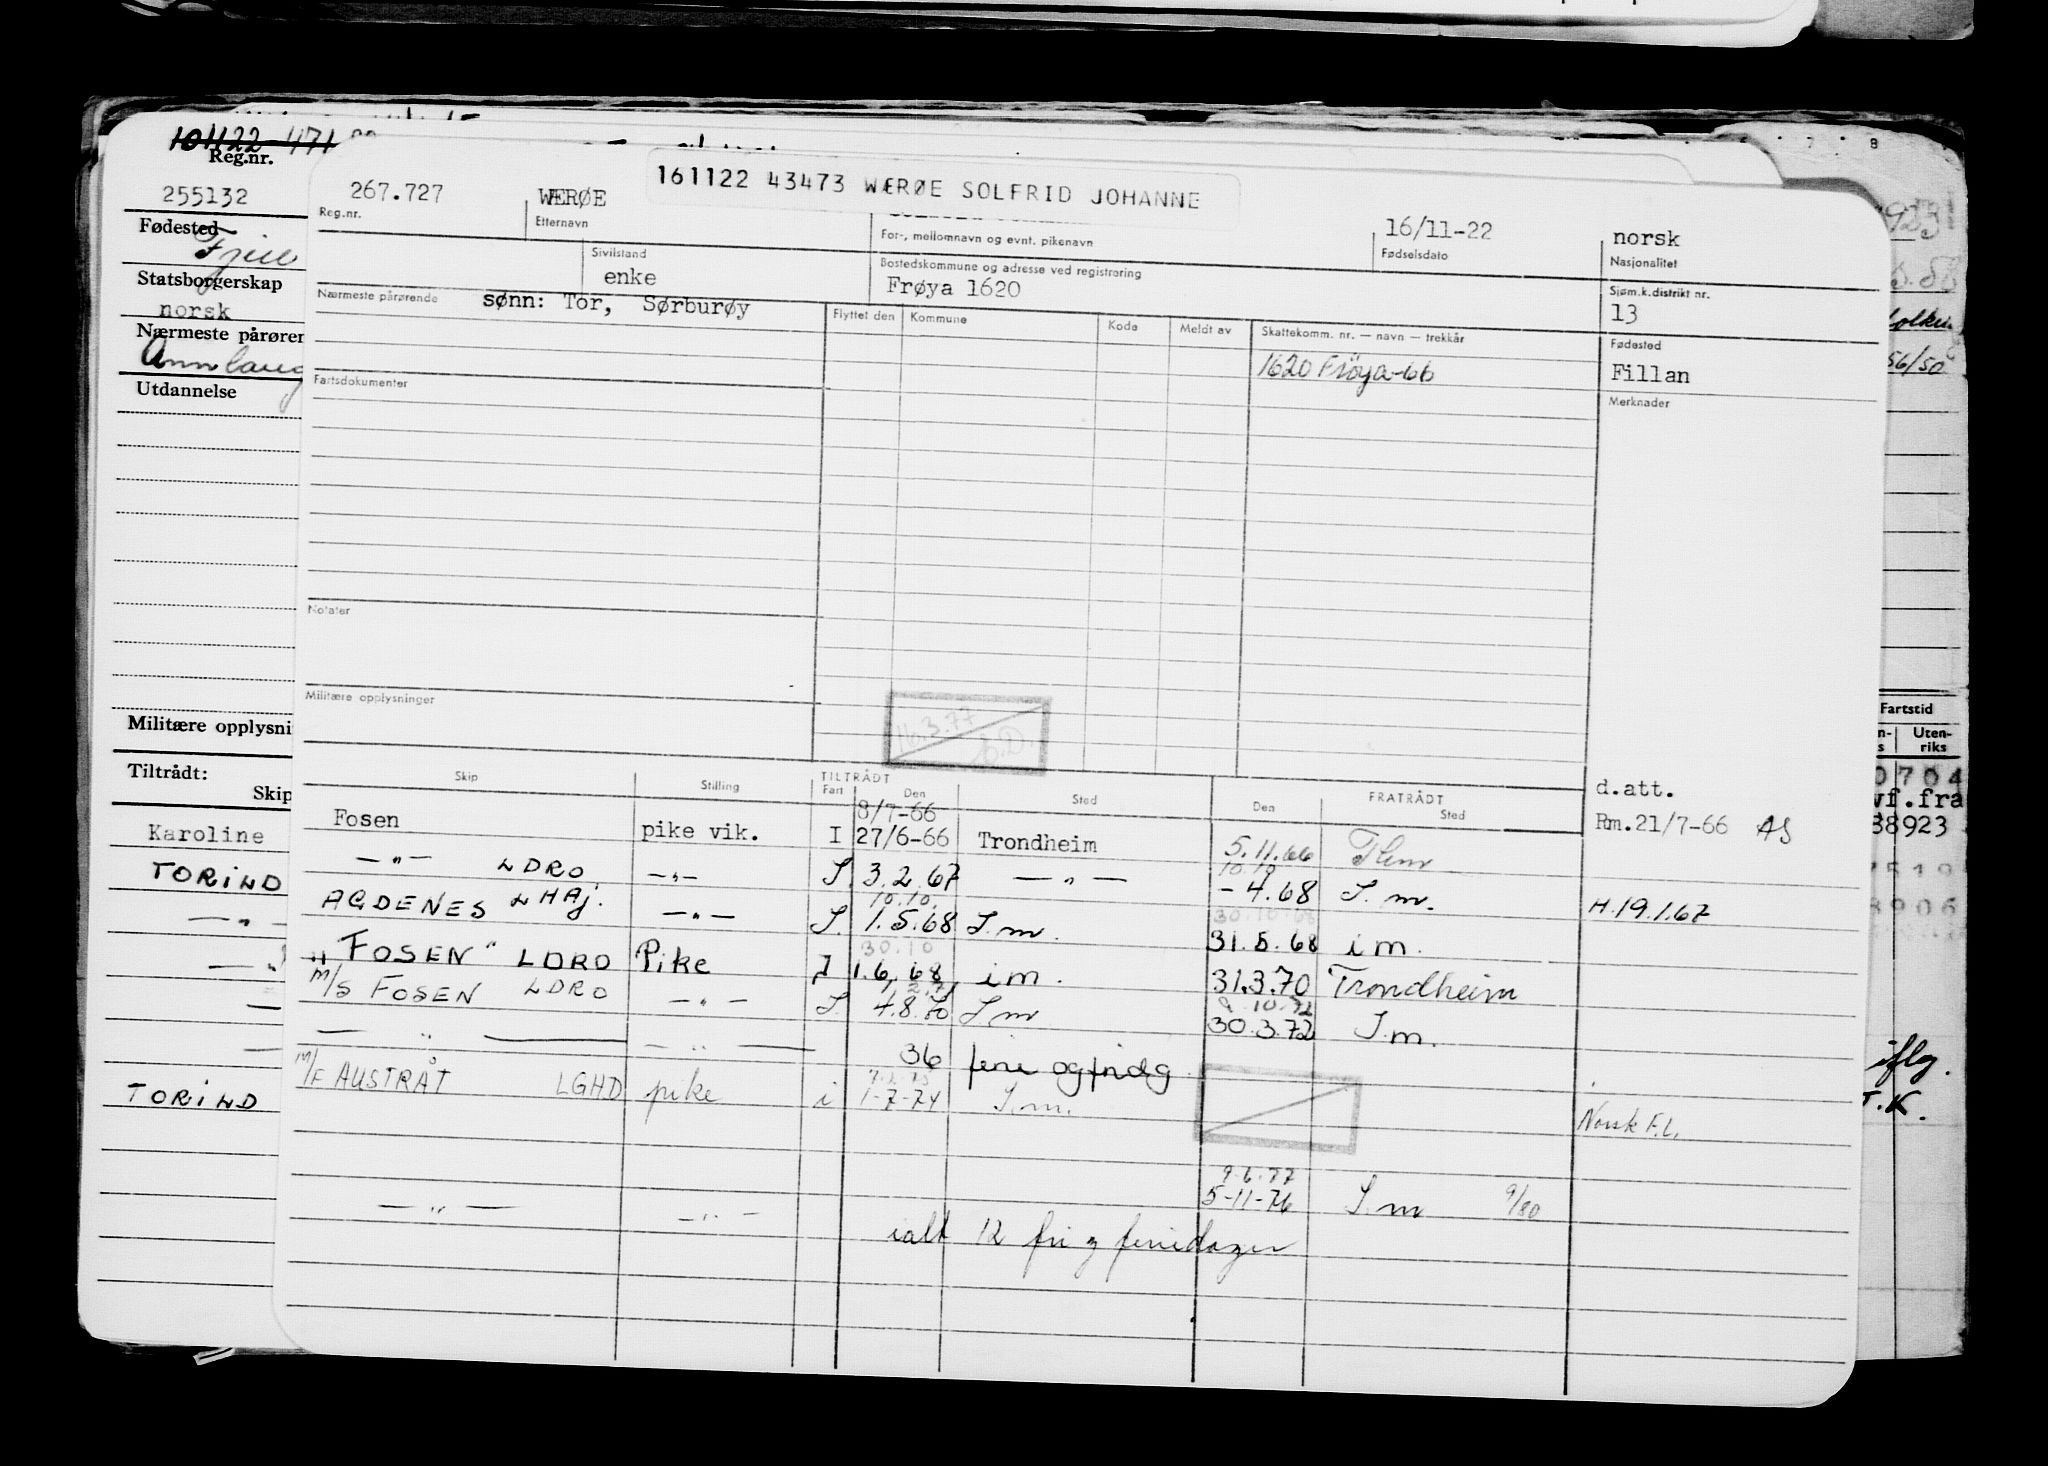 101122 471
Reg.nr.
255132
Fødested
Statsborgerskap
norsk
Nærmeste pårøren
Annlaug
Utdannelse
Militære opplysni
Tiltrådt:
Skip
Karoline
TORIND
— " —
TORIND
161122 43473 WÆRØE SOLFRID JOHANNE
267.727 WÆRØE 16/11-22 norsk
Reg.nr. Etternavn For-, mellomnavn og evnt. pikenavn Fødselsdato Nasjonalitet
Sivilstand Bostedskommune og adresse ved registrering Sjøm.k.distrikt nr.
enke Frøya 1620 13
Nærmeste pårørende sønn: Tor, Sørburøy Flyttet den Kommune Kode Meldt av Skattekomm. nr. — navn — trekkår Fødested
1620 Frøya-66 Fillan
Fartsdokumenter Merknader
Notater
Militære opplysninger
16.3.77
Skip Stilling TILTRÅDT Fart Den Sted FRATRÅDT Den Sted d.att.
8/7-66
Fosen pike vik. I 27/6-66 Trondheim 5.11.66 Thm Rm.21/7-66 AS
10.10
— " — LDRO — " — I. 3.2.67 — " — - 4.68 I. m. H.19.1.67
10.10. 30.10.68
AGDENES LHAJ. — " — I. 1.5.68 I. m. 31.5.68 i m.
30.10
"FOSEN" LDRO Pike I 1.6.68 i m. 31.3.70 Trondheim
M/S FOSEN LDRO — " — I. 4.8.70 I m 30.3.72 I. m.
— " — — " — 36 ferie og fridg
M/F AUSTRÅT LGHD pike i 1-7-74 I. m. Norsk F.L.
9.6.77
5-11-76 I. m 9/80
— " — — " — ialt 12 fri g feriedager
923
56/50
Fartstid
Uten-
riks
0704
vf.fra
38923
iflg.
T.K.